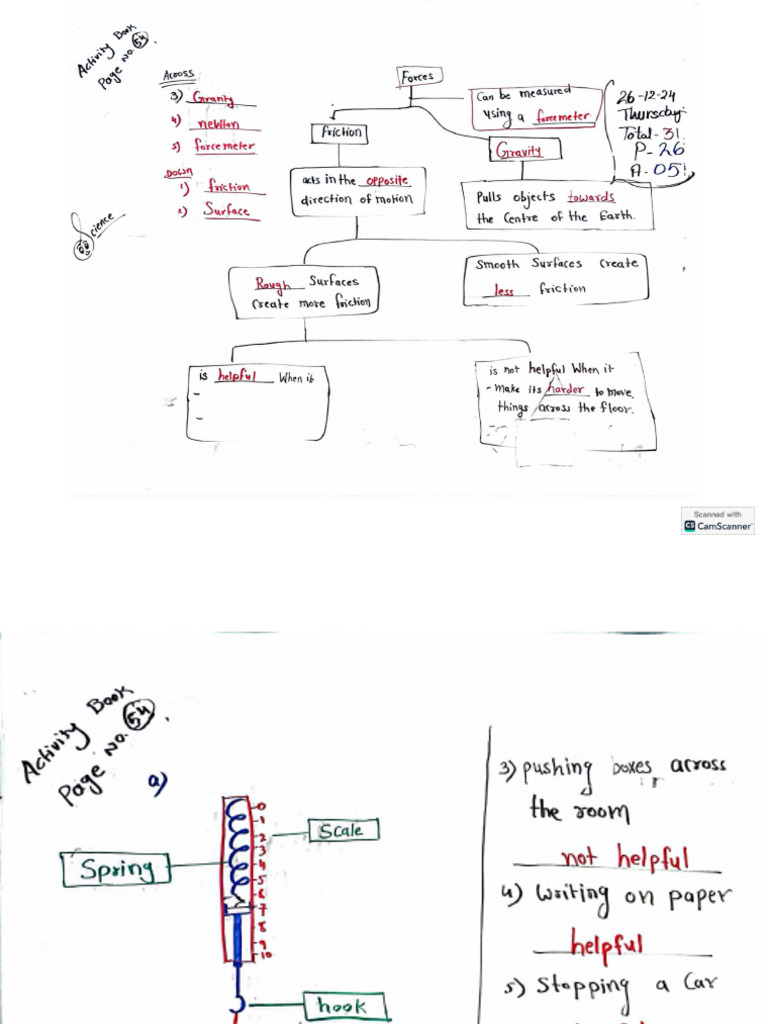 Activity Book
Page No. 54
ACROSS
3) Gravity
4) newton
5) forcemeter
DOWN
1) friction
2) Surface
Science
Forces
Can be measured
using a forcemeter
26-12-24
Thursday
Total-31
P-26
A-05
friction
Gravity
acts in the opposite
direction of motion
Pulls objects towards
the Centre of the Earth.
Rough Surfaces
Create more friction
Smooth Surfaces Create
less friction
is helpful When it
-
-
is not helpful When it
- make its harder to move
things across the floor.
-
Scanned with
CS CamScanner
Activity Book
Page No. 54.
a)
Spring
Scale
0
1
2
3
4
5
6
7
8
9
10
hook
3) pushing boxes across
the room
not helpful
4) Writing on paper
helpful
5) Stopping a Car